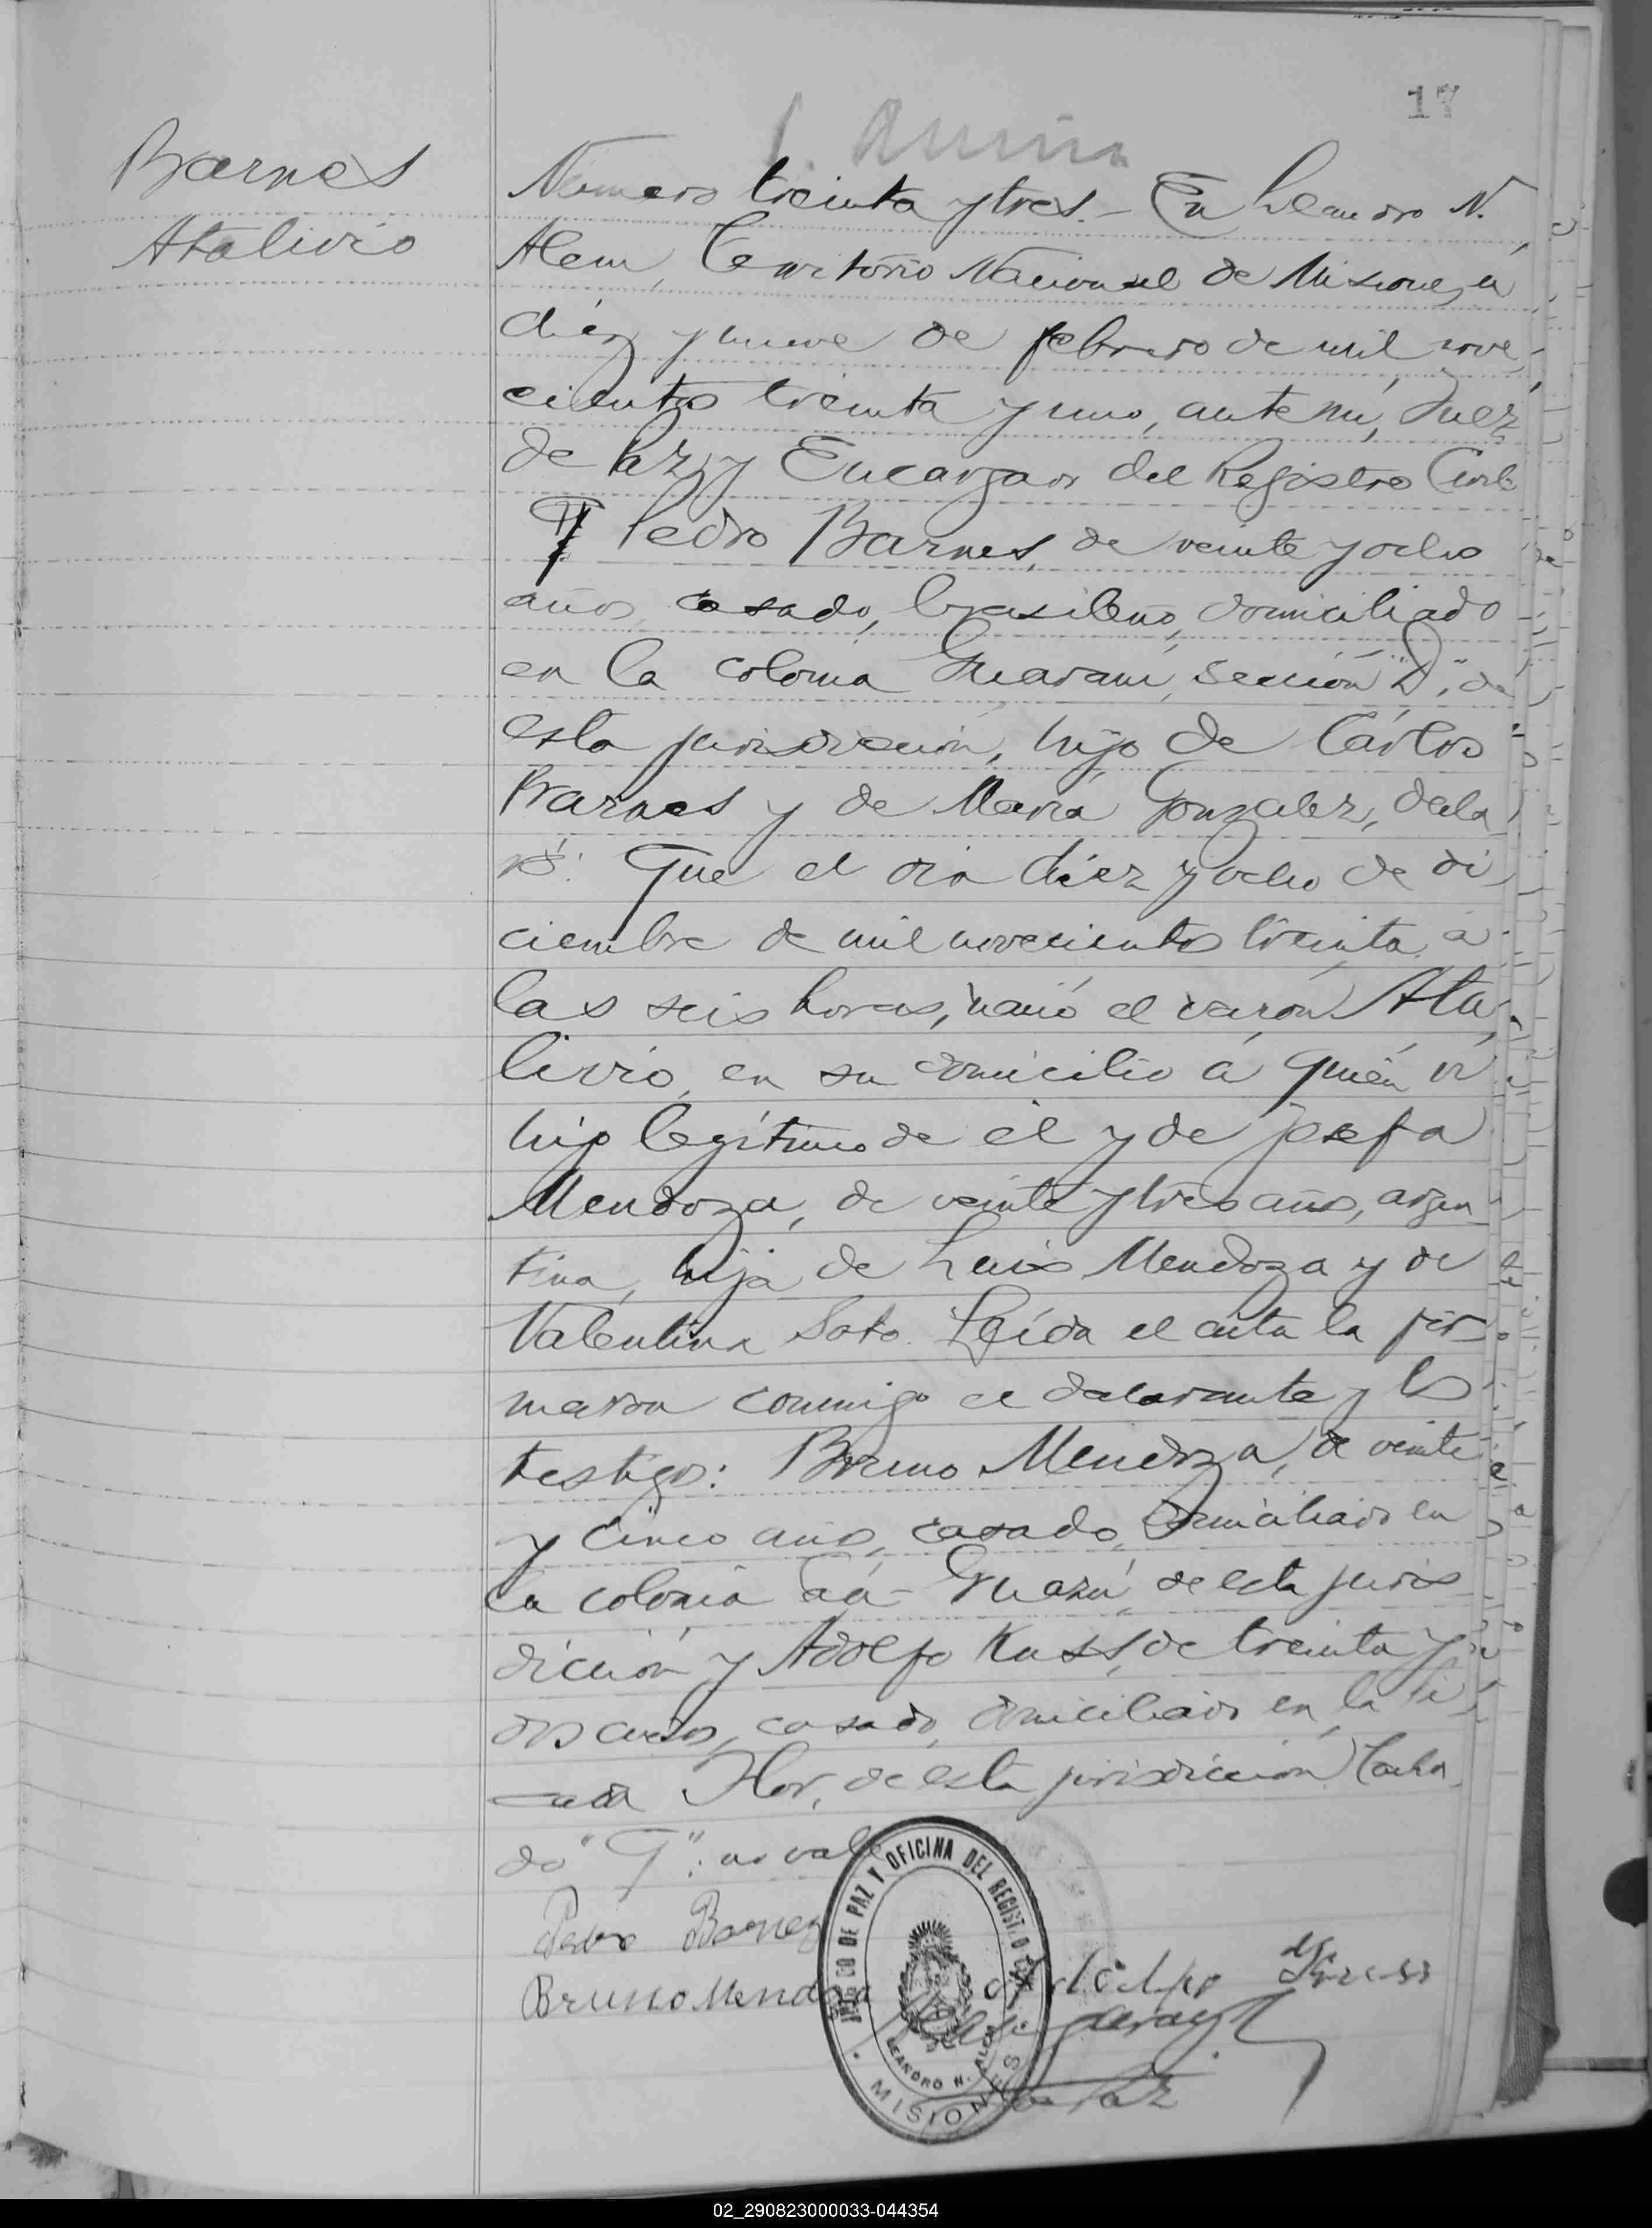 17
Barnes
Atalivio
Número treinta y tres.- En Leandro N.
Alem, Territorio Nacional de Misiones, á
diéz y nueve de febrero de mil nove-
cientos treinta y uno, ante mí, Juez
de Paz y Encargado del Registro Civil
Pedro Barnes, de veinte y ocho
años, casado, brasileño, domiciliado
en la colonia Guaraní, sección "D", de
esta jurisdicción, hijo de Cárlos
Barnes y de María Gonzalez, decla-
ró: Que el día diéz y ocho de di-
ciembre de mil novecientos treinta, á
las seis horas, nació el varón Ata-
livio, en su domicilio á quién ví
hijo legítimo de él y de Josefa
Mendoza, de veinte y tres años, argen-
tina, hija de Luis Mendoza y de
Valentina Soto. Leída el acta la fir-
maron conmigo el declarante y los
testigos: Bruno Mendoza, de veinte
y cinco años, casado, domiciliado en
la colonia Caá-Guazú, de esta juris-
dicción y Adolfo Kuss, de treinta y
dos años, casado, domiciliado en la Pi-
cada Flor, de esta jurisdicción. Tacha-
do "G": no vale
Pedro Barnes
Bruno Mendoza
Adolfo Kuss
Juez de Paz
JUZGADO DE PAZ Y OFICINA DEL REGISTRO CIVIL
LEANDRO N. ALEM
MISIONES
02_290823000033-044354